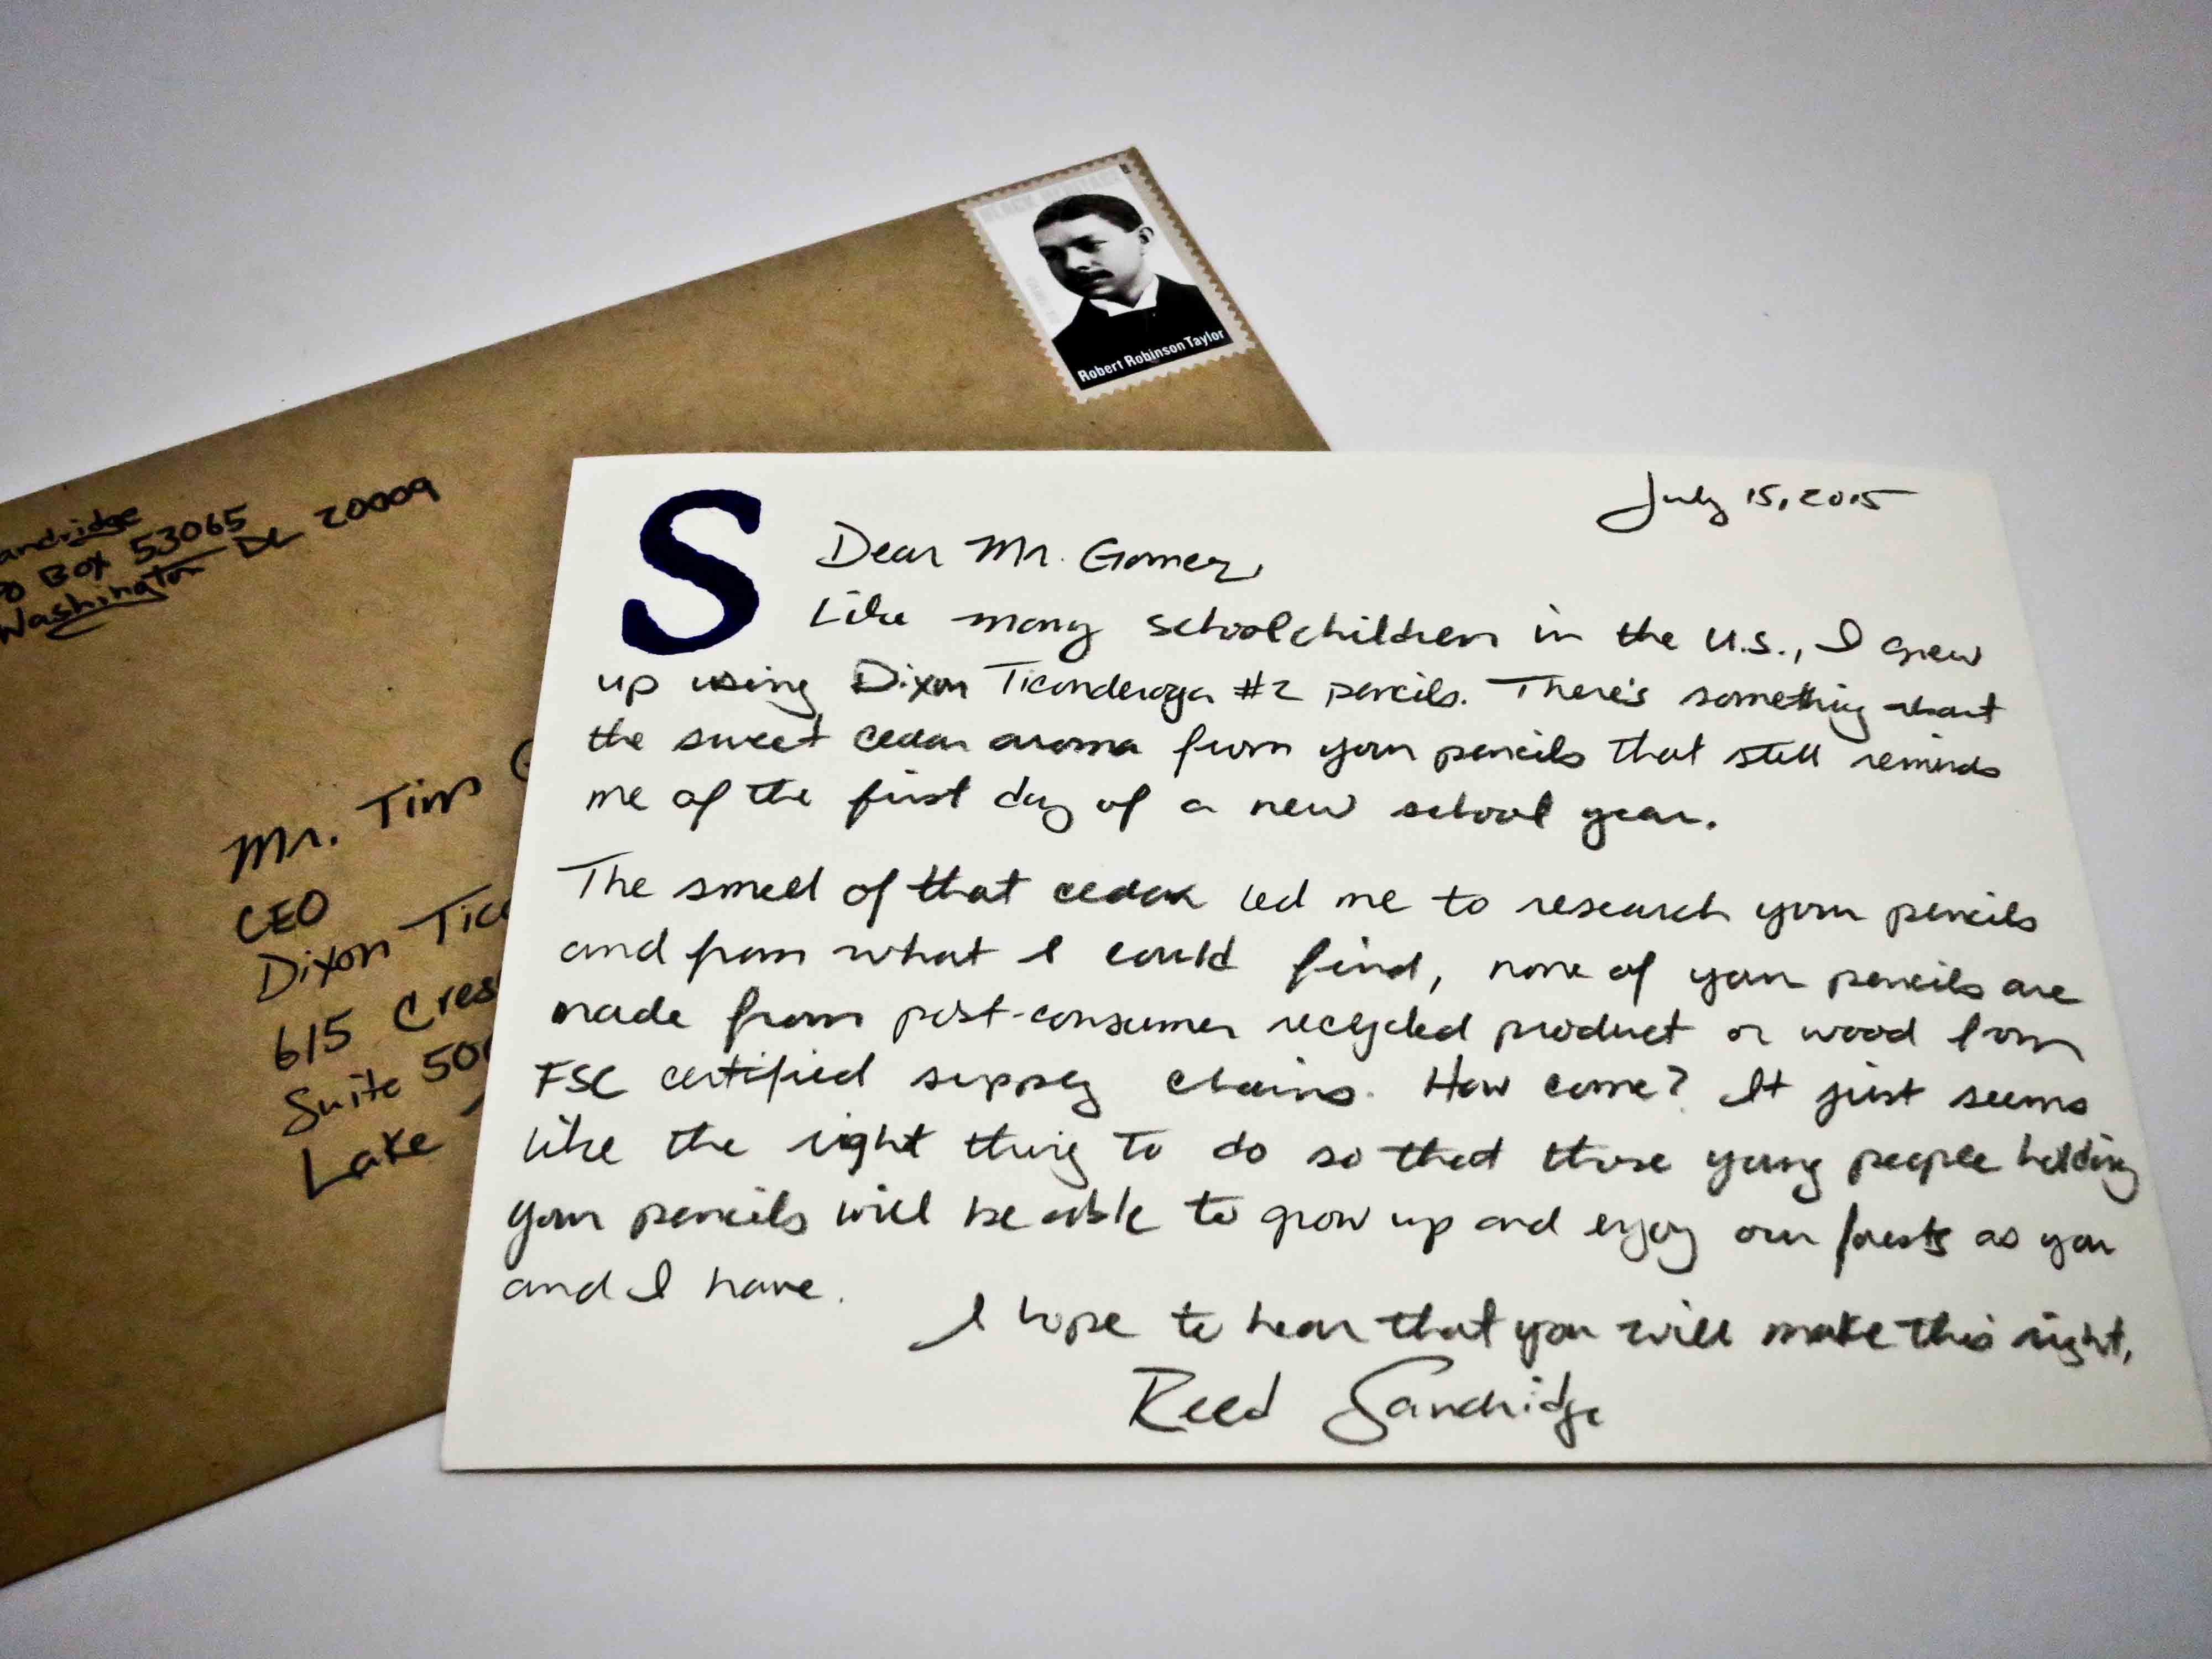 BLACK HERITAGE
Robert Robinson Taylor
andridge
PO BOX 53065
Washington DC 20009
Mr. Tim G
CEO
Dixon Tico
615 Cres
Suite 500
Lake
S
July 15, 2015
Dear Mr. Gomez,
Like many schoolchildren in the U.S., I grew
up using Dixon Ticonderoga #2 pencils. There's something about
the sweet cedar aroma from your pencils that still reminds
me of the first day of a new school year.
The smell of that cedar led me to research your pencils
and from what I could find, none of your pencils are
made from post-consumer recycled product or wood from
FSC certified supply chains. How come? It just seems
like the right thing to do so that those young people holding
your pencils will be able to grow up and enjoy our forests as you
and I have.
I hope to hear that you will make this right,
Reed Sandridge